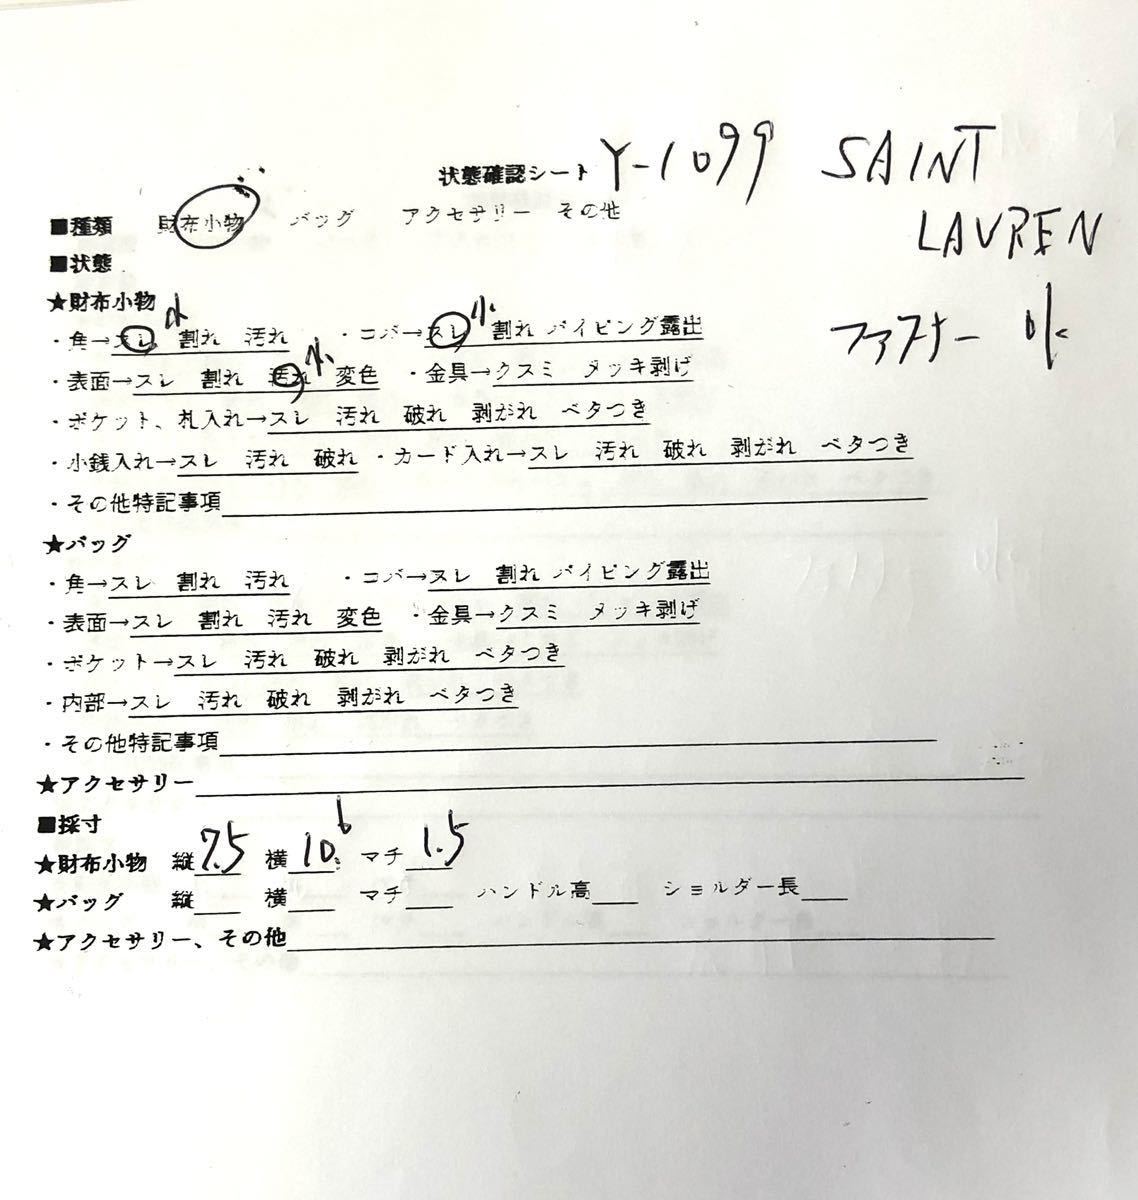 状態確認シート Y-1099 SAINT
LAUREN
■種類 財布小物 バッグ アクセサリー その他
■状態
★財布小物
ファスナー 小
小 小
・角→スレ 割れ 汚れ ・コバ→スレ 割れ パイピング露出
小
・表面→スレ 割れ 汚れ 変色 ・金具→クスミ メッキ剥げ
・ポケット、札入れ→スレ 汚れ 破れ 剥がれ ベタつき
・小銭入れ→スレ 汚れ 破れ ・カード入れ→スレ 汚れ 破れ 剥がれ ベタつき
・その他特記事項
★バッグ
・角→スレ 割れ 汚れ ・コバ→スレ 割れ パイピング露出
・表面→スレ 割れ 汚れ 変色 ・金具→クスミ メッキ剥げ
・ポケット→スレ 汚れ 破れ 剥がれ ベタつき
・内部→スレ 汚れ 破れ 剥がれ ベタつき
・その他特記事項
★アクセサリー
■採寸
★財布小物 縦7.5 横10 マチ1.5
★バッグ 縦 横 マチ ハンドル高 ショルダー長
★アクセサリー、その他